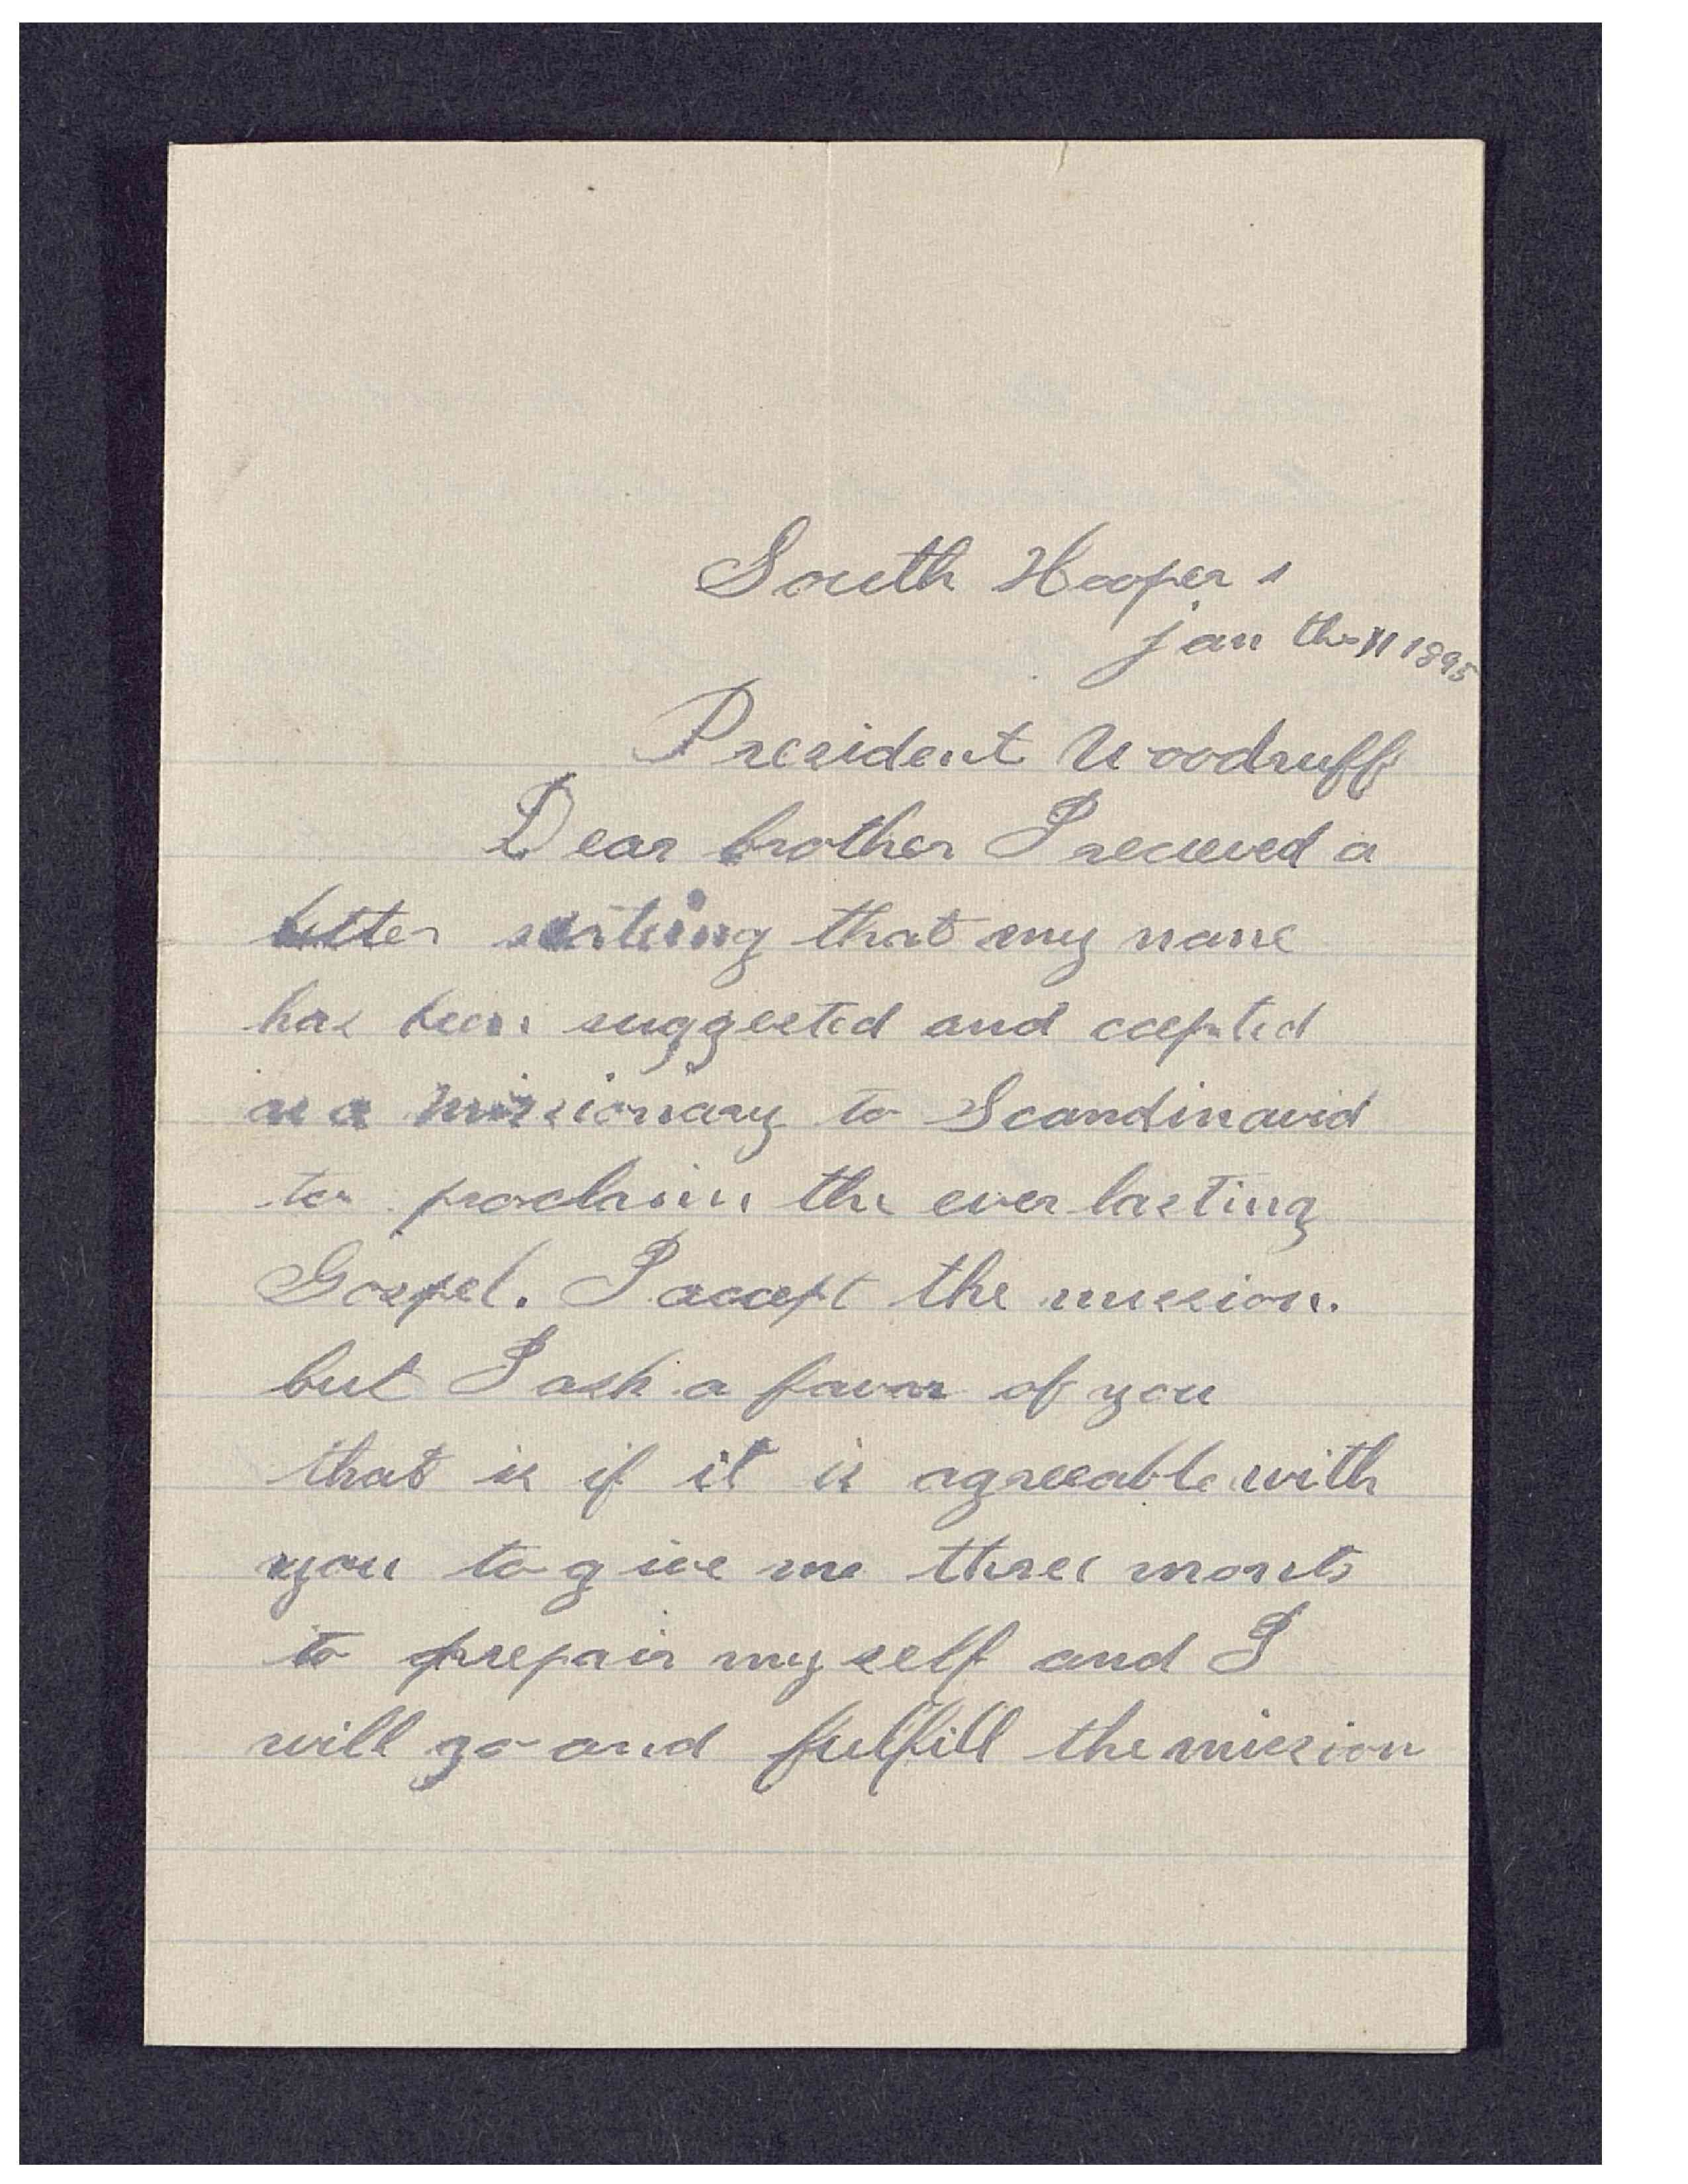 South Hooper
jan the 11 1895
President Woodruff
Dear brother I recieved a
letter stating that my name
has been suggested and ccepted
as a missionary to Scandinavia
to proclaim the ever lasting
Gospel. I accept the mission.
but I ask a favor of you
that is if it is agreeable with
you to give me three monts
to prepair my self and I
will go and fulfill the mission